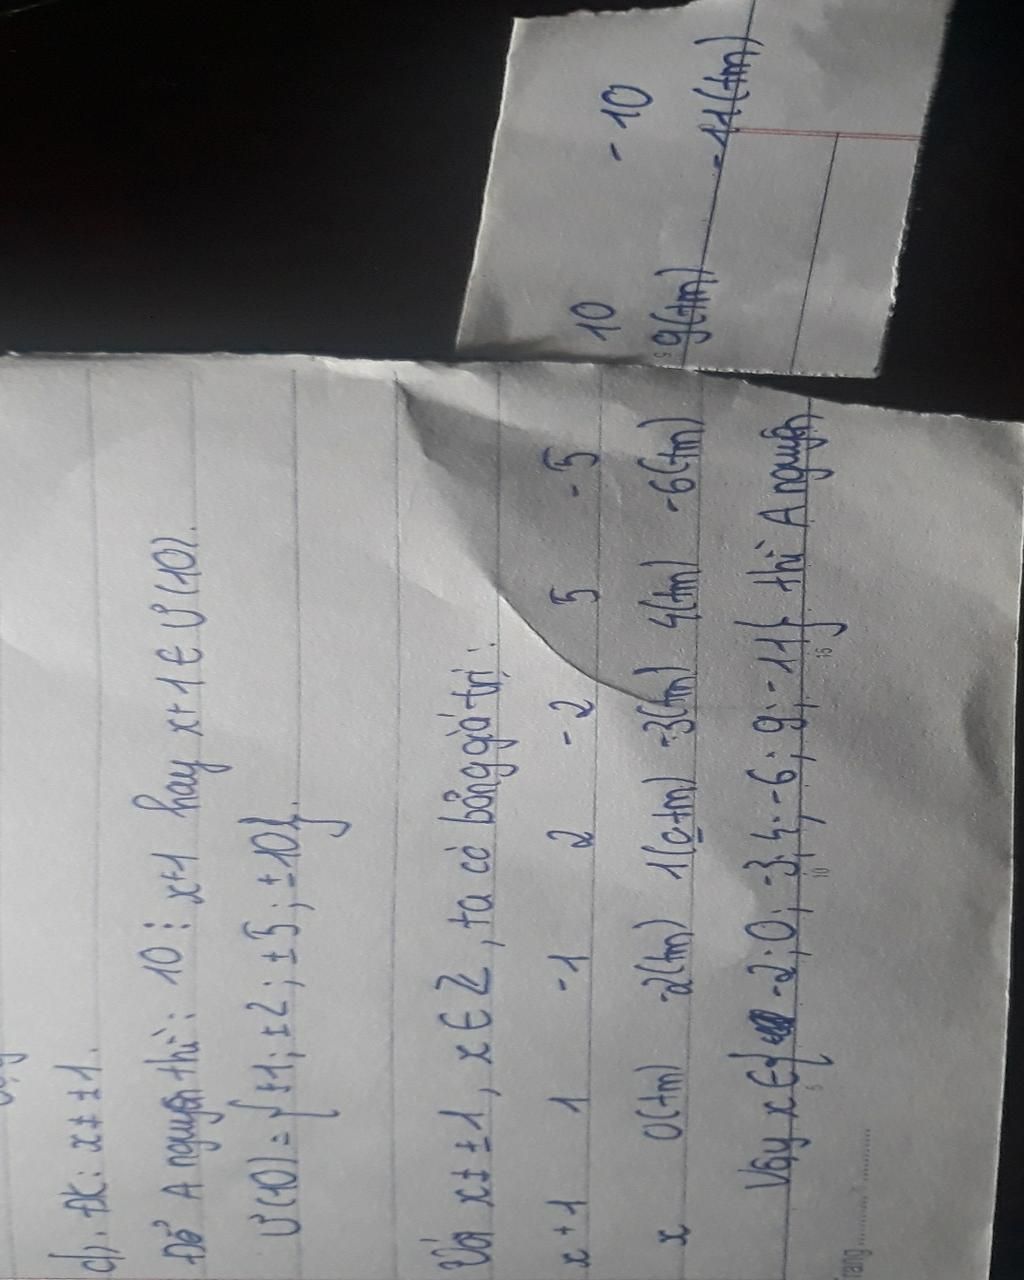 d). ĐK: x ≠ ±1.
Để A nguyên thì: 10 ⋮ x+1 hay x+1 ∈ Ư(10).
Ư(10) = {±1; ±2; ±5; ±10}.
Với x ≠ ±1, x ∈ Z, ta có bảng giá trị:
x+1 1 -1 2 -2 5 -5 10 -10
x 0(tm) -2(tm) 1(otm) -3(tm) 4(tm) -6(tm) 9(tm) -11(tm)
Vậy x ∈ { -2; 0; -3; 4; -6; 9; -11} thì A nguyên